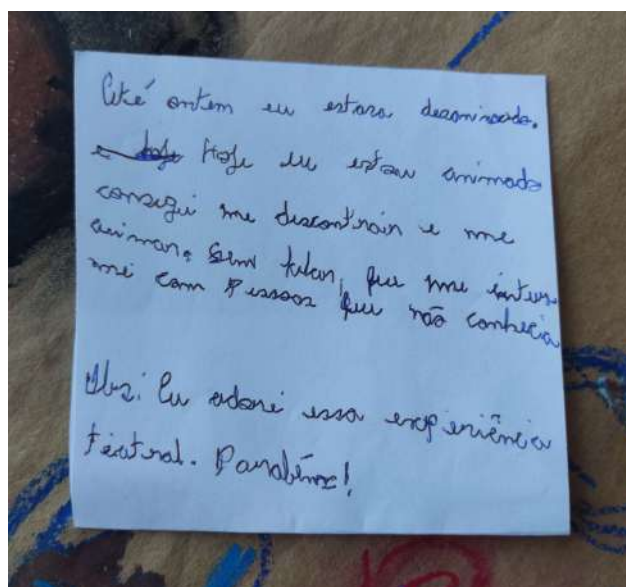 Até ontem eu estava desanimado.
Hoje eu estou animado
consegui me descontrair e me
animar. Sem falar, que me entur
mei com pessoas que não conhecia
Obs: Eu adorei essa experiência
teatral. Parabéns!